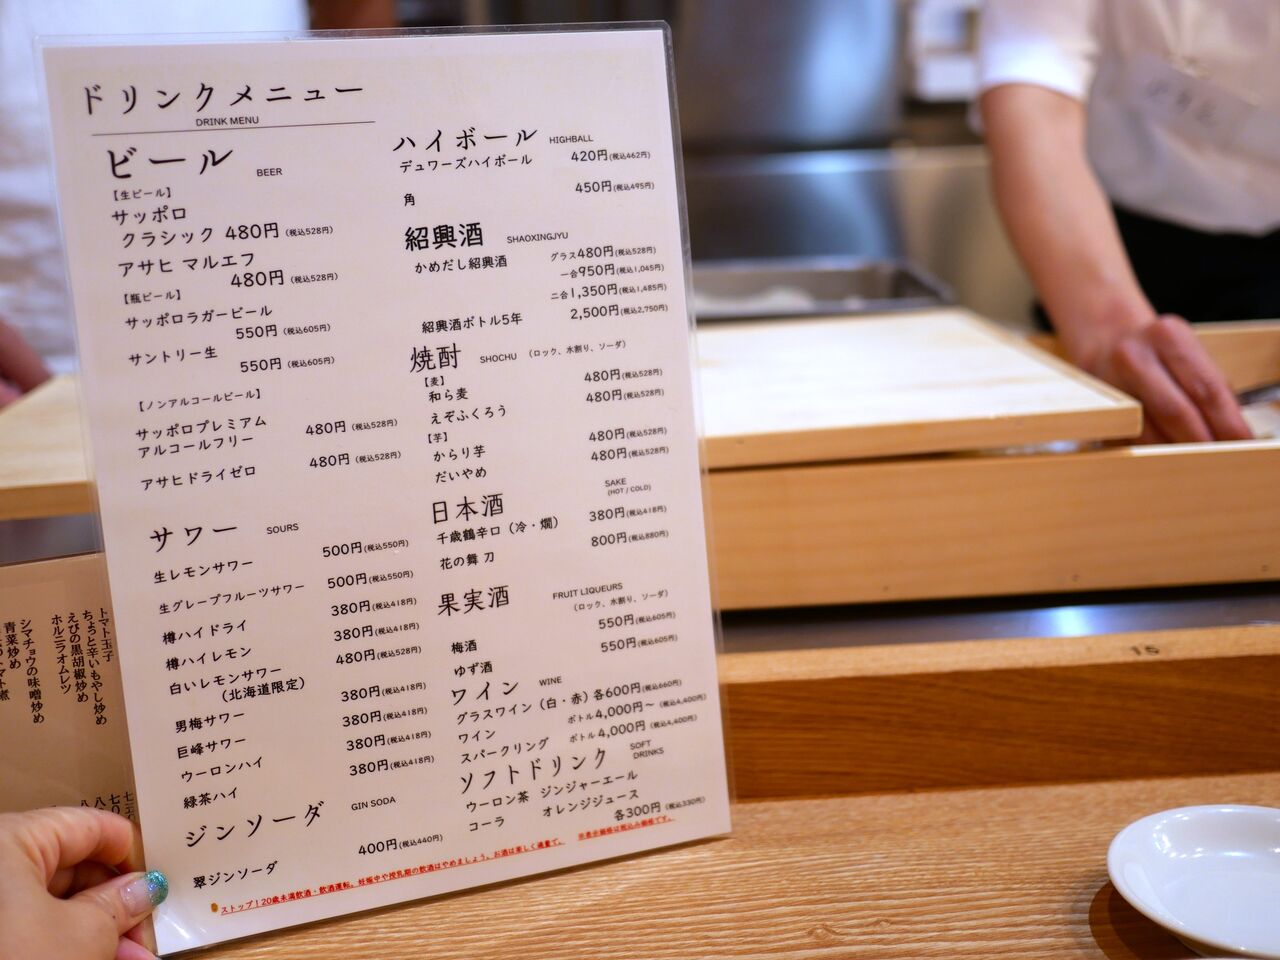 ドリンクメニュー
DRINK MENU
ビール BEER
【生ビール】
サッポロ
クラシック 480円(税込528円)
アサヒ マルエフ
480円(税込528円)
【瓶ビール】
サッポロラガービール
550円(税込605円)
サントリー生
550円(税込605円)
【ノンアルコールビール】
サッポロプレミアム
アルコールフリー 480円(税込528円)
アサヒドライゼロ 480円(税込528円)
サワー SOURS
生レモンサワー 500円(税込550円)
生グレープフルーツサワー 500円(税込550円)
樽ハイドライ 380円(税込418円)
樽ハイレモン 380円(税込418円)
白いレモンサワー 480円(税込528円)
(北海道限定)
男梅サワー 380円(税込418円)
巨峰サワー 380円(税込418円)
ウーロンハイ 380円(税込418円)
緑茶ハイ 380円(税込418円)
ジンソーダ GIN SODA
翠ジンソーダ 400円(税込440円)
ハイボール HIGHBALL
デュワーズハイボール 420円(税込462円)
角 450円(税込495円)
紹興酒 SHAOXINGJYU
かめだし紹興酒 グラス480円(税込528円)
一合950円(税込1,045円)
二合1,350円(税込1,485円)
紹興酒ボトル5年 2,500円(税込2,750円)
焼酎 SHOCHU (ロック、水割り、ソーダ)
【麦】
和ら麦 480円(税込528円)
えぞふくろう 480円(税込528円)
【芋】
からり芋 480円(税込528円)
だいやめ 480円(税込528円)
日本酒 SAKE
(HOT / COLD)
千歳鶴辛口(冷・燗) 380円(税込418円)
花の舞 刀 800円(税込880円)
果実酒 FRUIT LIQUEURS
(ロック、水割り、ソーダ)
梅酒 550円(税込605円)
ゆず酒 550円(税込605円)
ワイン WINE
グラスワイン(白・赤)各600円(税込660円)
ワイン ボトル4,000円〜(税込4,400円)
スパークリング ボトル4,000円(税込4,400円)
ソフトドリンク SOFT
DRINKS
ウーロン茶 ジンジャーエール
コーラ オレンジジュース
各300円(税込330円)
ストップ!20歳未満飲酒・飲酒運転。妊娠中や授乳期の飲酒はやめましょう。お酒は楽しく適量で。 ※表示価格は税込み価格です。
トマト玉子
ちょっと辛いもやし炒め
えびの黒胡椒炒め
ホルニラオムレツ
シマチョウの味噌炒め
青菜炒め
15